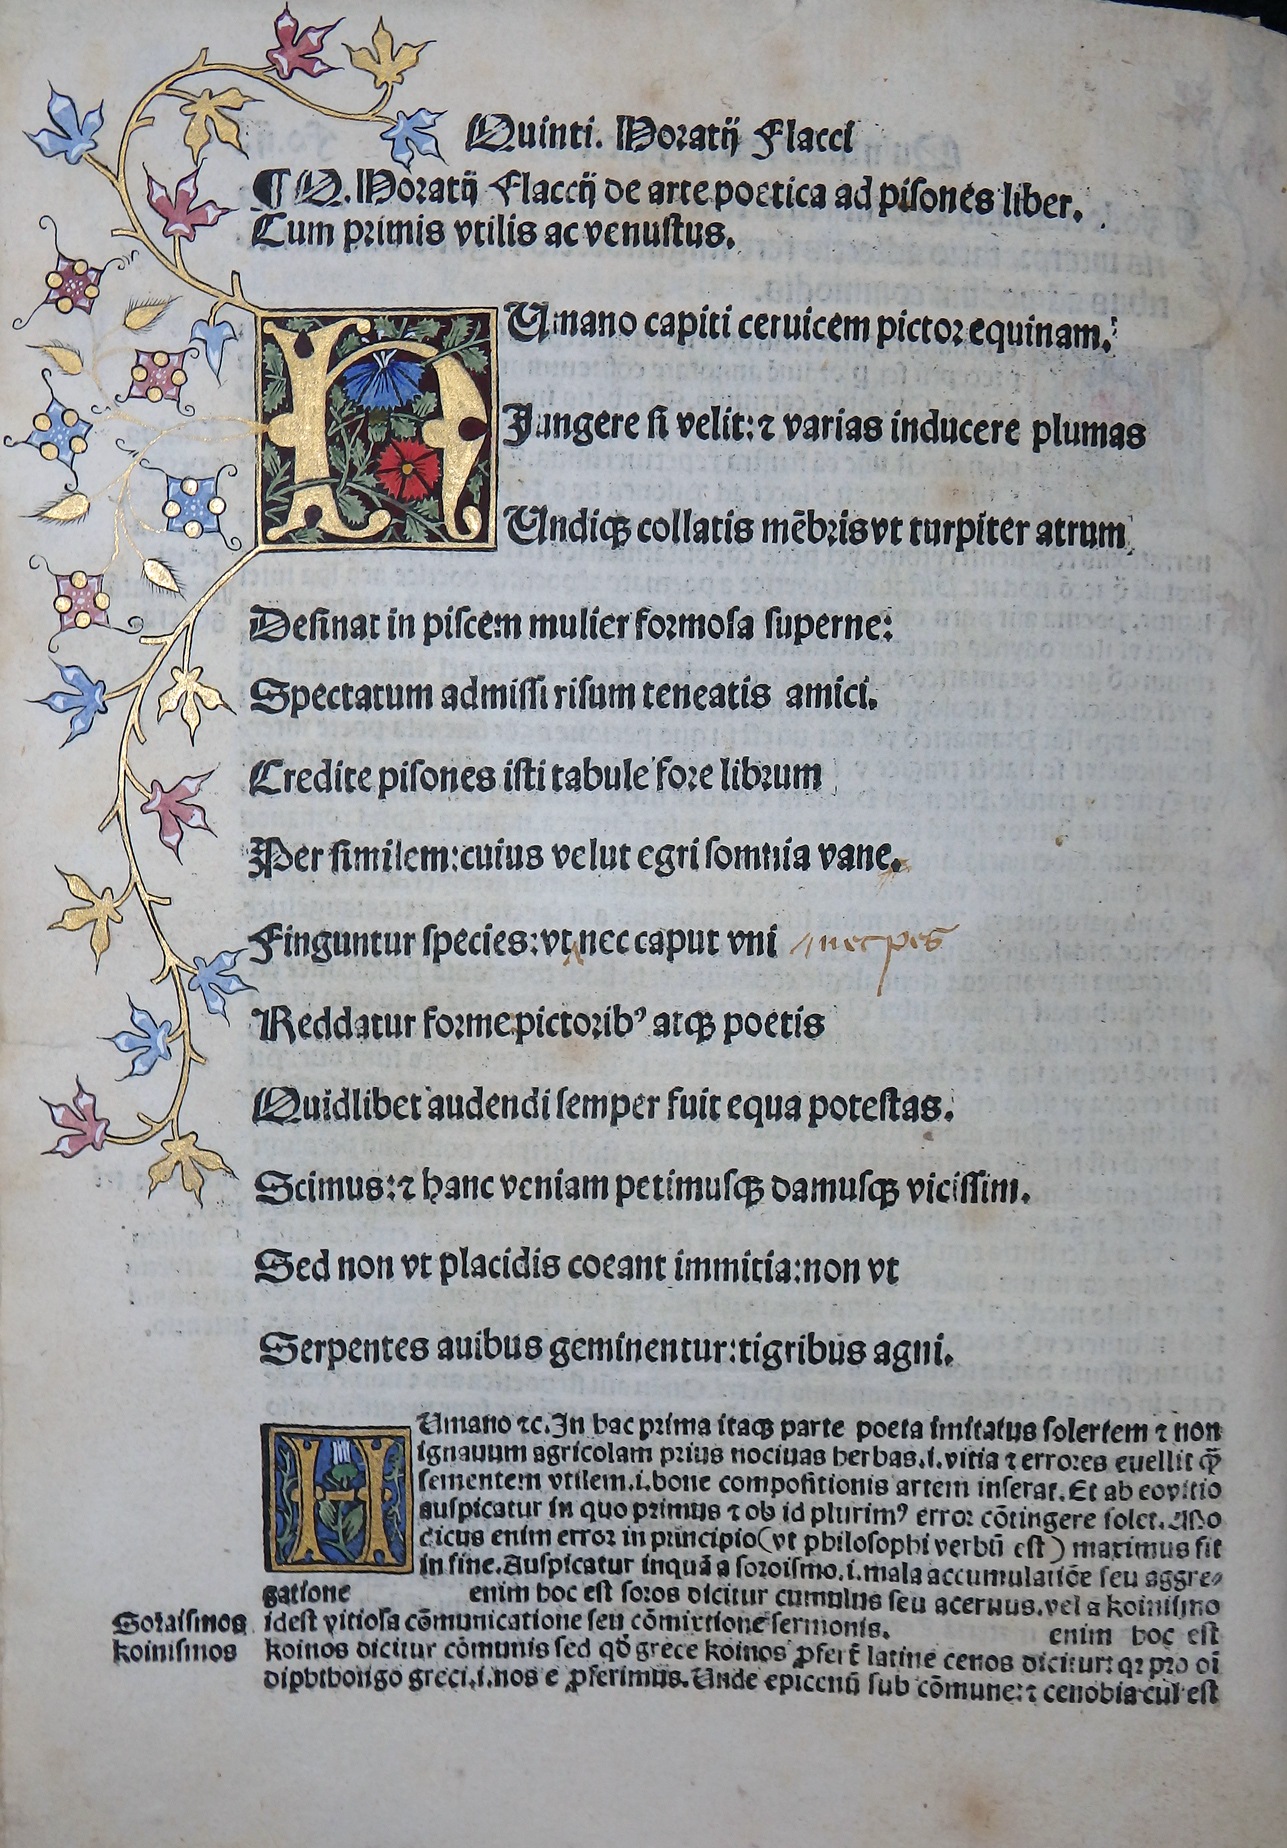 Quinti. Horatij Flacci
¶ Q. Horatij Flaccij de arte poetica ad pisones liber.
Cum primis vtilis ac venustus.
HUmano capiti ceruicem pictor equinam.
Jungere si velit: ⁊ varias inducere plumas
Undiqꝫ collatis mēbris vt turpiter atrum
Desinat in piscem mulier formosa superne:
Spectatum admissi risum teneatis amici.
Credite pisones isti tabule fore librum
Per similem: cuius velut egri somnia vane.
Finguntur species: vt nec caput vni nec pes
Reddatur forme pictoribꝰ atqꝫ poetis
Quidlibet audendi semper fuit equa potestas.
Scimus: ⁊ hanc veniam petimusqꝫ damusqꝫ vicissim.
Sed non vt placidis coeant immitia: non vt
Serpentes auibus geminentur: tigribus agni.
HUmano ⁊c. In hac prima itaqꝫ parte poeta imitatus solertem ⁊ non
ignauum agricolam prius nociuas herbas .i. vitia ⁊ errores euellit qꝫ̄
sementem vtilem .i. bone compositionis artem inserat. Et ab eo vitio
auspicatur in quo primus ⁊ ob id plurimꝰ error cōtingere solet. Mo
dicus enim error in principio (vt philosophi verbū est) maximus fit
in fine. Auspicatur inquā a soroismo .i. mala accumulatiōe seu aggre⸗
gatione enim hoc est soros dicitur cumulus seu aceruus. vel a koinismo
Soraismos idest vitiosa cōmunicatione seu cōmixtione sermonis. enim hoc est
koinismos koinos dicitur cōmunis sed qđ grece koinos ꝓfert̄ latine cenos dicitur: qꝛ pro oi
diphthongo greci .i. nos e ꝓferimus. Unde epicenū sub cōmune: ⁊ cenobia cui est